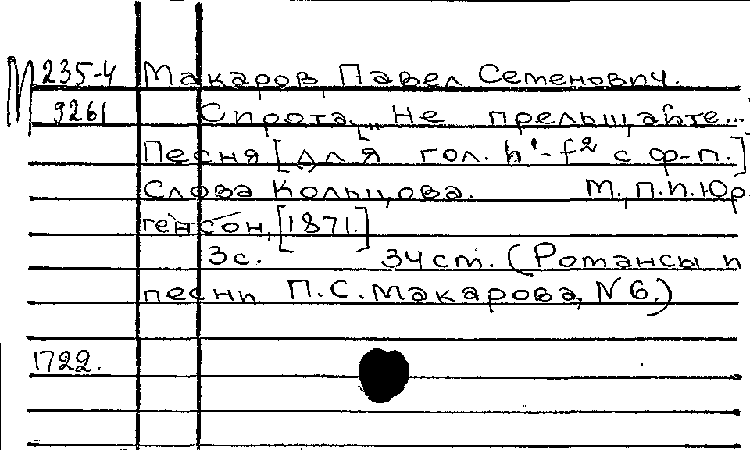 М 235-4 Макаров, Павел Семенович.
9261 Сирота. [„Не прельщайте...]
Песня [для гол. h¹-f² с ф-п.]
Слова Кольцова. М., П.И.Юр
генсон, [1871.]
3с. 34см. (Романсы и
песни П.С.Макарова, N 6.)
1722.